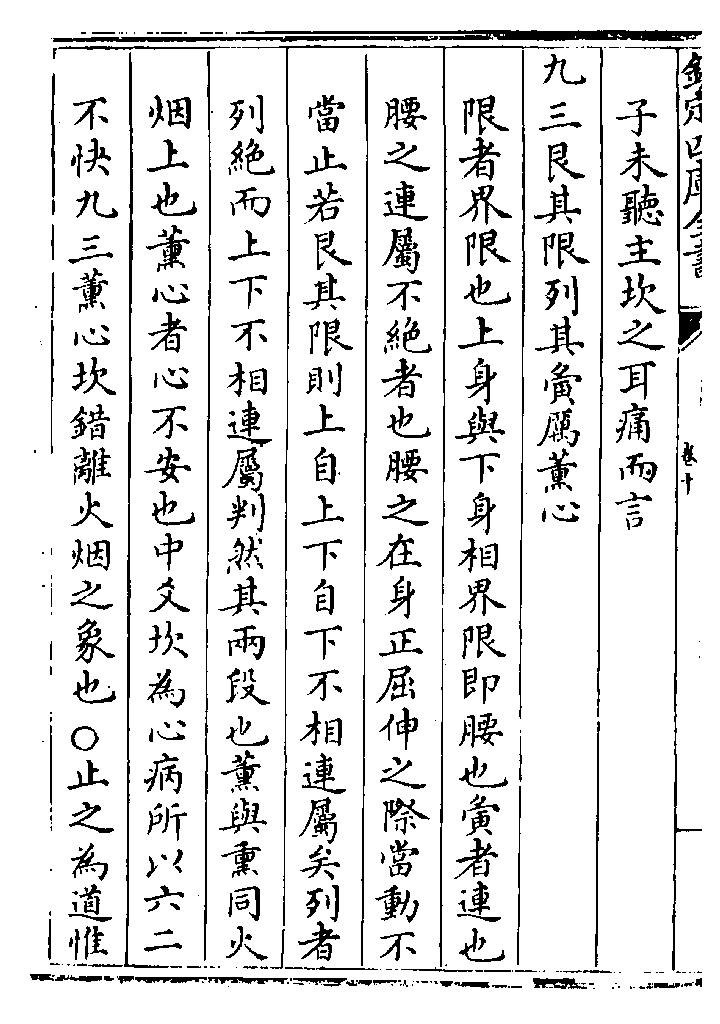 欽定四庫全書
卷十
子未聽主坎之耳痛而言
九三艮其限列其夤厲薰心
限者界限也上身與下身相界限即腰也夤者連也
腰之連屬不絕者也腰之在身正屈伸之際當動不
當止若艮其限則上自上下自下不相連屬矣列者
列絕而上下不相連屬判然其兩段也薰與熏同火
烟上也薰心者心不安也中爻坎為心病所以六二
不快九三薰心坎錯離火烟之象也○止之為道惟